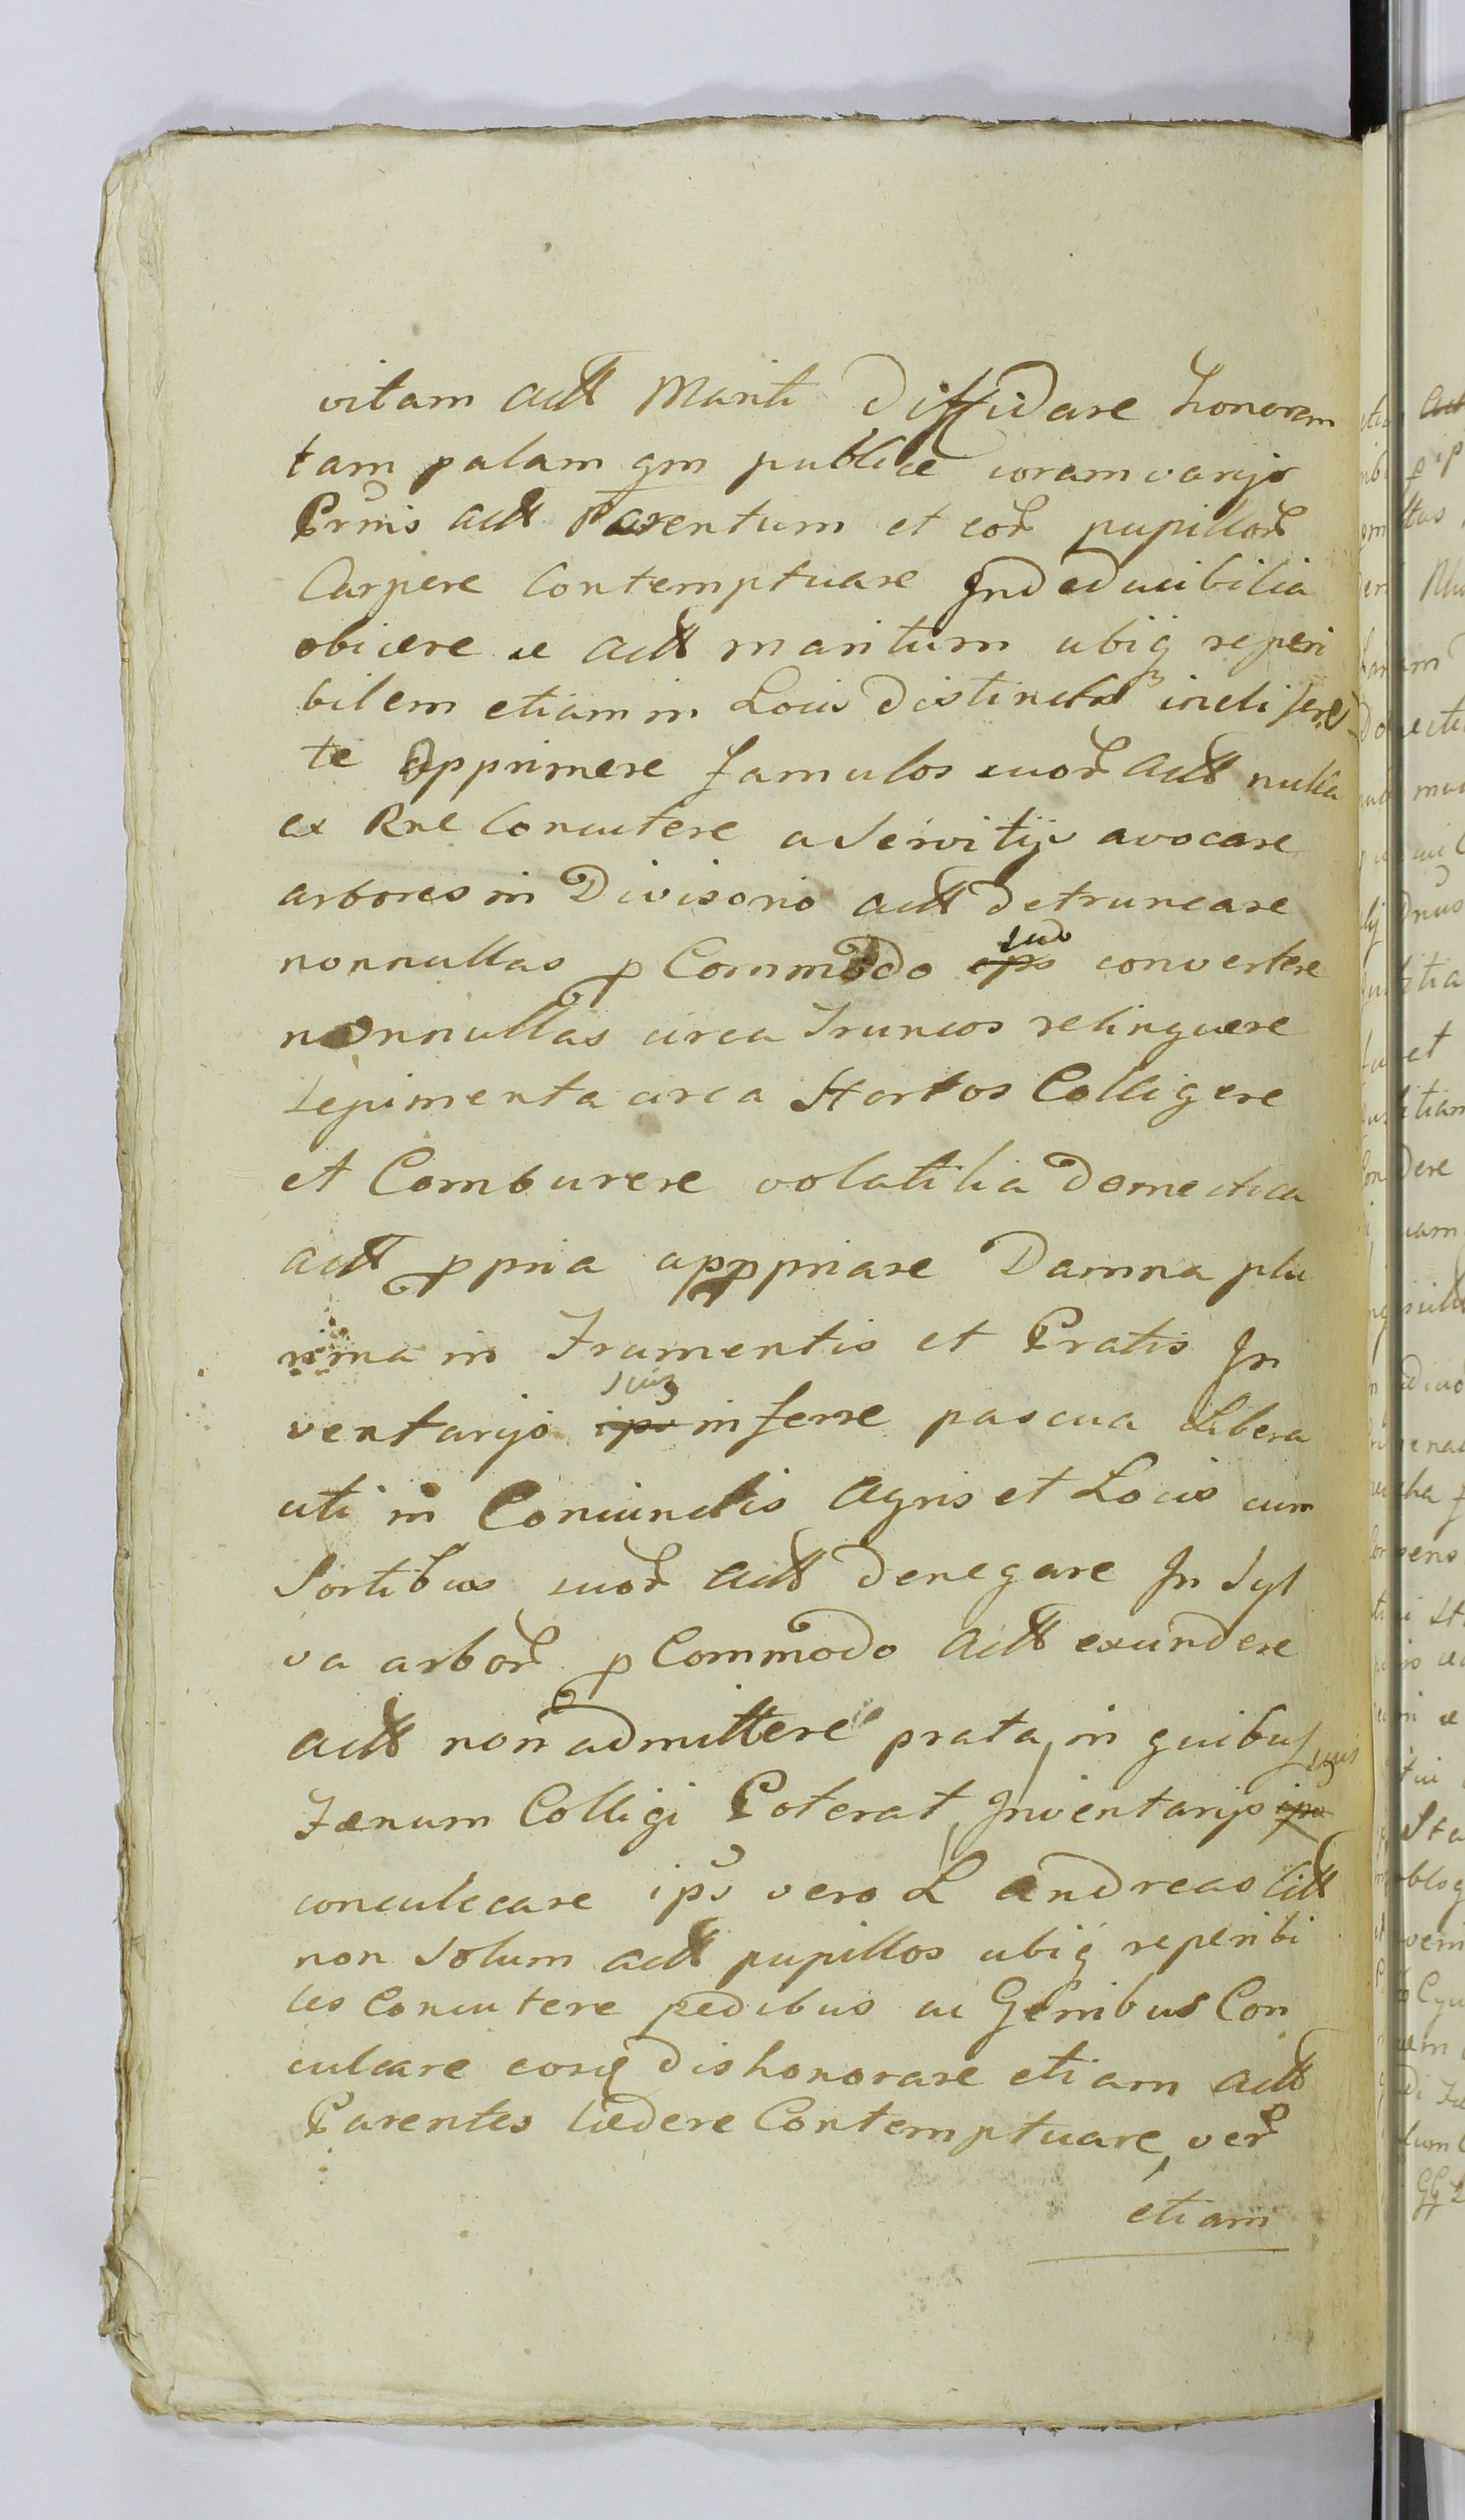 vitam actt Mariti diffidare honorem
tam palam qm publice coram varijs
Prnis actt Parentum et eor pupillor
Carpere Contemptuare Indeducibilia
obicere ac actt maritum ubiq reperi
bilem etiam in Locis distinctis indifferen
te opprimere famulos suor actt nulla
ex Rne Concutere a Servitijs avocare
arbores in Divisorio actt detruncare
nonnullas p Commodo suo convertere
nonnullas circa Truncos relinquere
Sepimenta circa Hortos Colligere
et Comburere volatilia domestica
actt ppria apppriare Damna plu
rima in Frumentis et Pratis In
ventarijs suis inferre pascua Libera
uti in Coniunctis agris et Locis cum
Sortibus suor actt denegare In Syl
va arbor p Commodo actt excindere
actt non admittere prata, in quibus
Fænum Colligi Poterat, Inventarijs suis
conculccare ips vero L andreas Citt
non Solum actt pupillos ubiq reperibi
les Concutere pedibus ac Genibus Con
culcare eosq dishonorare etiam actt
Parentes lædere Contemptuare, ver
etiam